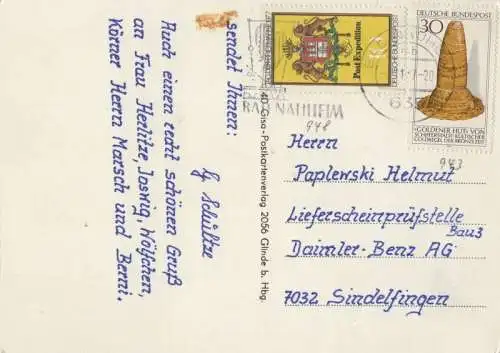 sendet Ihnen:
Auch einen recht schönen Gruß
an Frau Herlitze, Joswig, Wölfchen,
Körner Herrn Marsch und Berni.
40 Gisa-Postkartenverlag 2056 Glinde b. Hbg.
DEUTSCHE BUNDESPOST
Post Expedition
DEUTSCHE BUNDESPOST
30
»GOLDENER HUT« VON
SCHIFFERSTADT · KULTISCHER
GOLDKEGEL DER BRONZEZEIT
BAD NAUHEIM
948
943
Herrn
Paplewski Helmut
Lieferscheinprüfstelle
Bau3
Daimler-Benz AG
7032 Sindelfingen